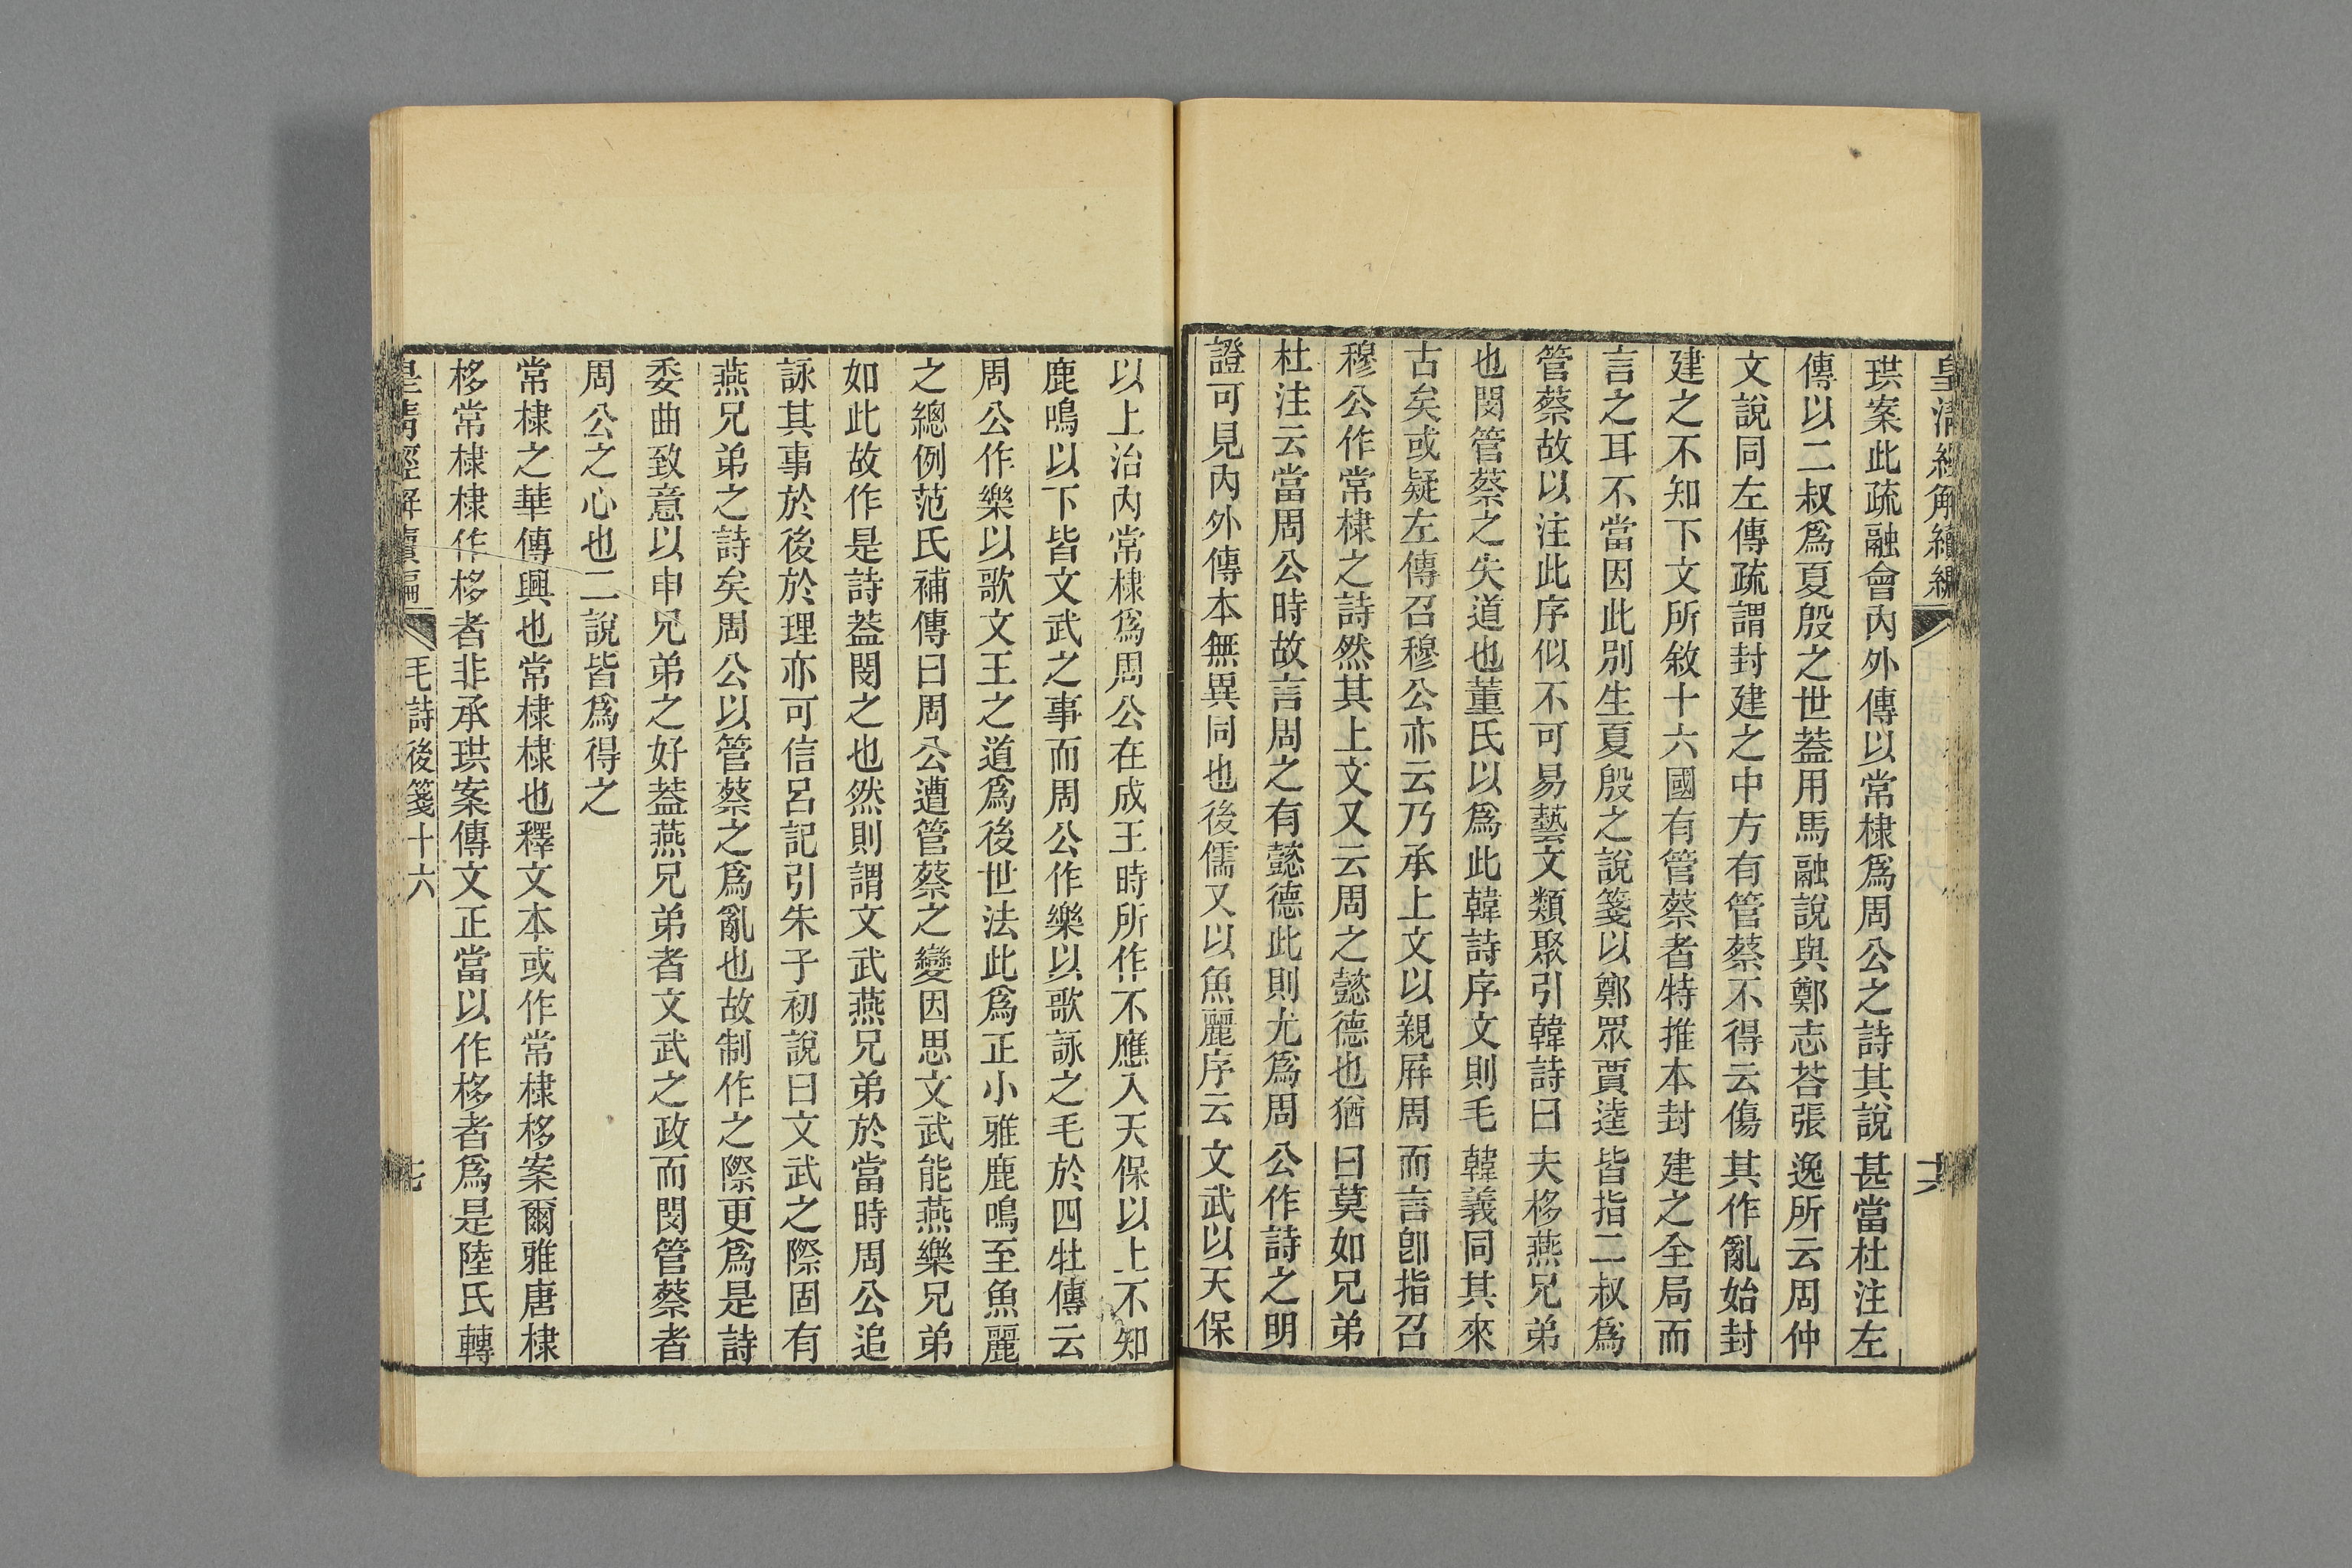 皇清經解續編
十六
珙案此疏融會內外傳以常棣爲周公之詩其說甚當杜注左
傳以二叔爲夏殷之世葢用馬融說與鄭志荅張逸所云周仲
文說同左傳疏謂封建之中方有管蔡不得云傷其作亂始封
建之不知下文所敘十六國有管蔡者特推本封建之全局而
言之耳不當因此別生夏殷之說箋以鄭眾賈逵皆指二叔爲
管蔡故以注此序似不可易藝文類聚引韓詩曰夫栘燕兄弟
也閔管蔡之失道也董氏以爲此韓詩序文則毛韓義同其來
古矣或疑左傳召穆公亦云乃承上文以親屛周而言卽指召
穆公作常棣之詩然其上文又云周之懿德也猶曰莫如兄弟
杜注云當周公時故言周之有懿德此則尤爲周公作詩之明
證可見內外傳本無異同也後儒又以魚麗序云文武以天保
以上治內常棣爲周公在成王時所作不應入天保以上不知
鹿鳴以下皆文武之事而周公作樂以歌詠之毛於四牡傳云
周公作樂以歌文王之道爲後世法此爲正小雅鹿鳴至魚麗
之總例范氏補傳曰周公遭管蔡之變因思文武能燕樂兄弟
如此故作是詩葢閔之也然則謂文武燕兄弟於當時周公追
詠其事於後於理亦可信呂記引朱子初說曰文武之際固有
燕兄弟之詩矣周公以管蔡之爲亂也故制作之際更爲是詩
委曲致意以申兄弟之好葢燕兄弟者文武之政而閔管蔡者
周公之心也二說皆爲得之
常棣之華傳興也常棣棣也釋文本或作常棣栘案爾雅唐棣
栘常棣棣作栘者非承珙案傳文正當以作栘者爲是陸氏轉
皇清經解續編
毛詩後箋十六
七